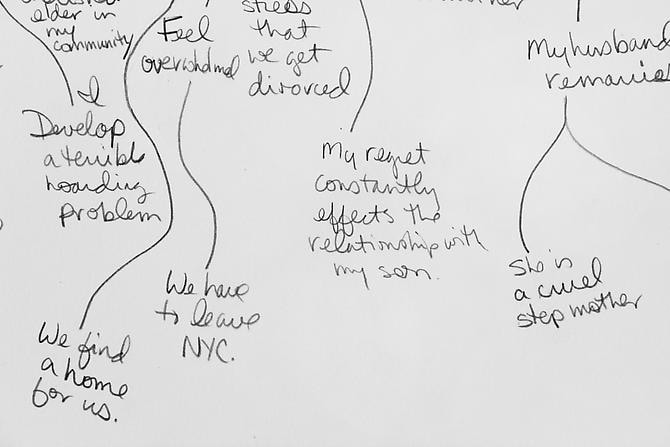 elder in
my
community
I
Develop
a terrible
hoarding
problem
We find
a home
for us.
Feel
overwhelmed
We have
to leave
NYC.
stress
that
we get
divorced
My regret
constantly
effects the
relationship with
my son.
My husband
remarries
She is
a cruel
step mother